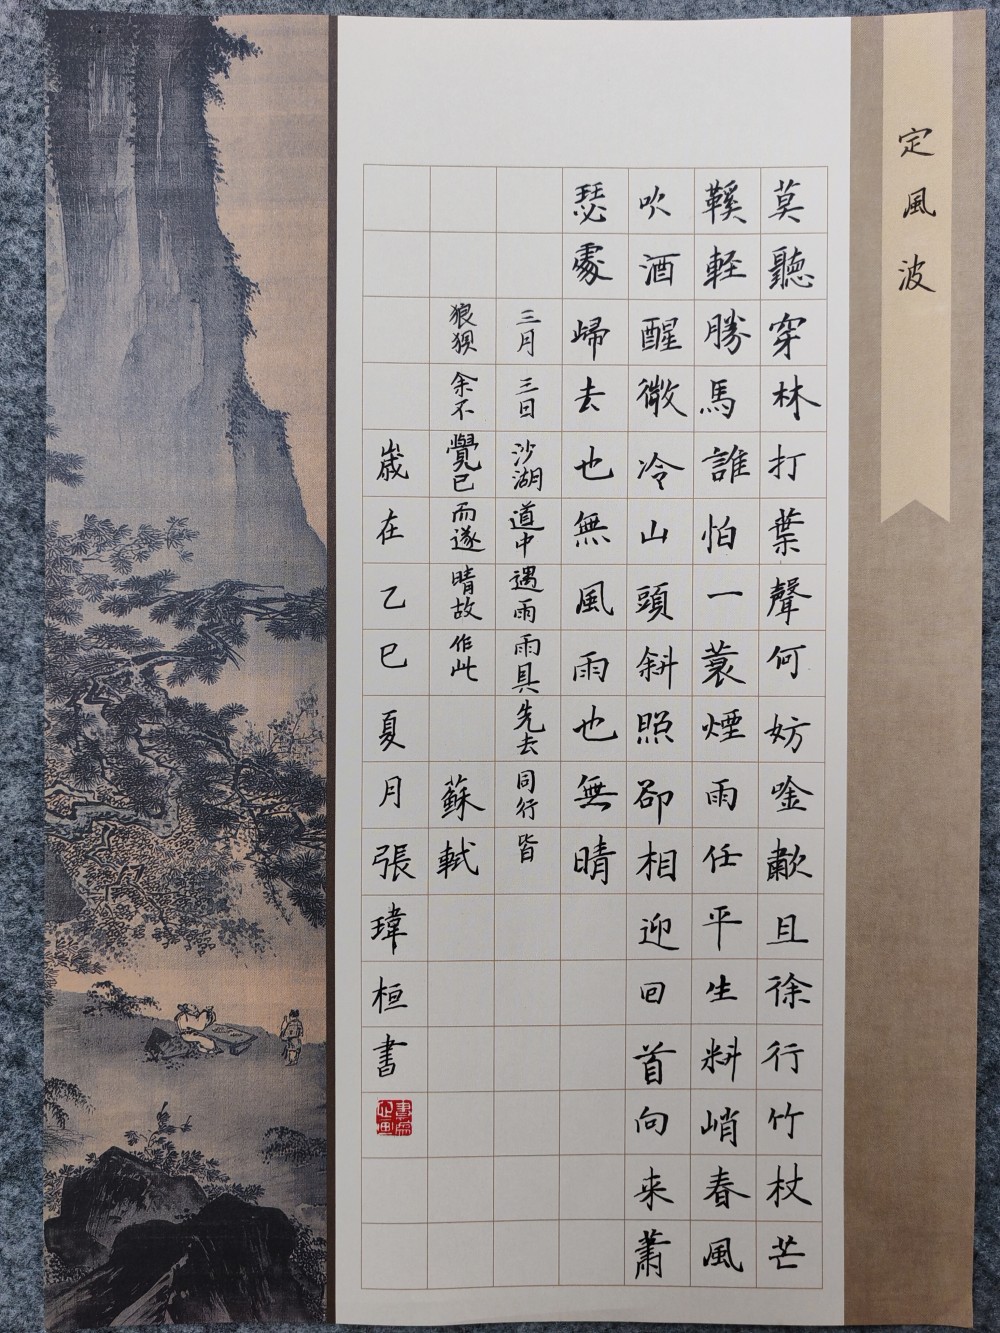 定風波
莫聽穿林打葉聲何妨唫歗且徐行竹杖芒
鞵軽勝馬誰怕一蓑煙雨任平生料峭春風
吹酒醒微冷山頭斜照郤相迎回首向来蕭
瑟處歸去也無風雨也無晴
三月三日沙湖道中遇雨雨具先去同行皆
狼狽余不覺已而遂晴故作此 蘇軾
歲在乙巳夏月張瑋桓書